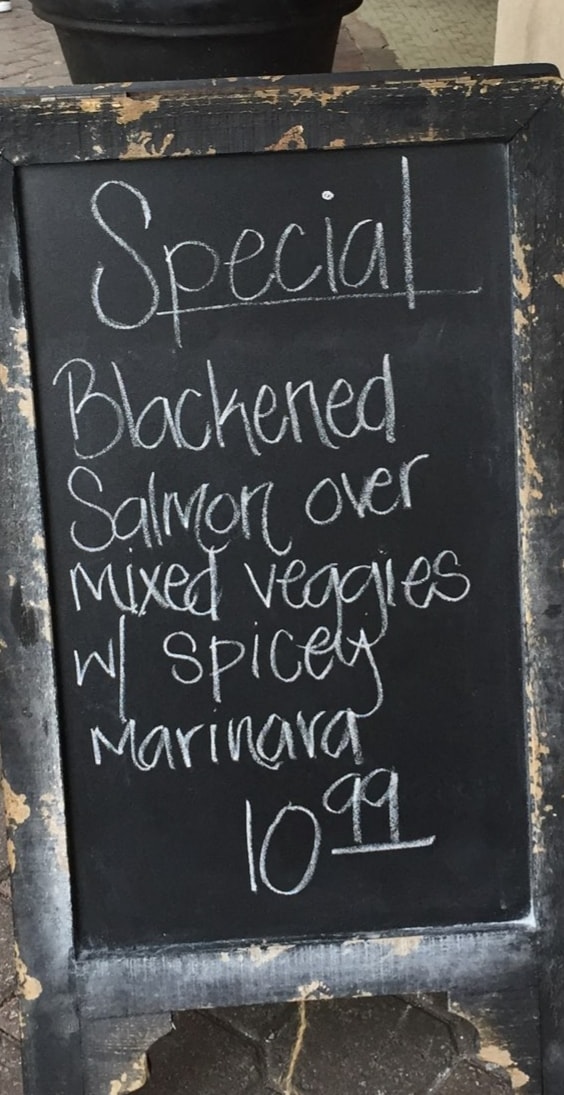 Special
Blackened
Salmon over
mixed veggies
w/ spicey
marinara
10 99